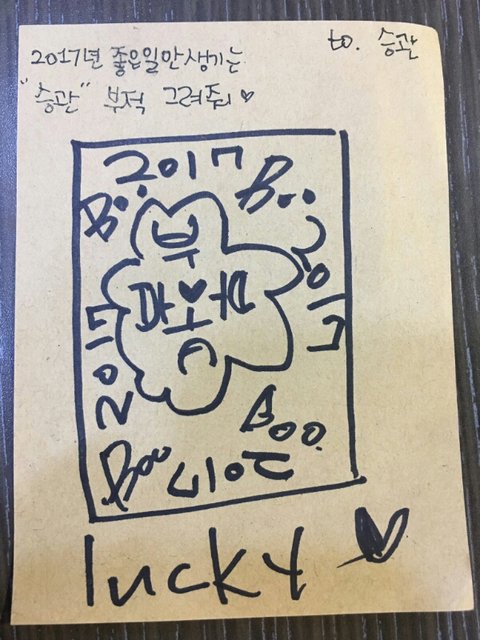 to. 승관
2017년 좋은일만생기는
"승관" 부적 그려줘 ♥
2017
Boo
Boo
부
2017
2017
Boo
Boo
2017
lucky ♥